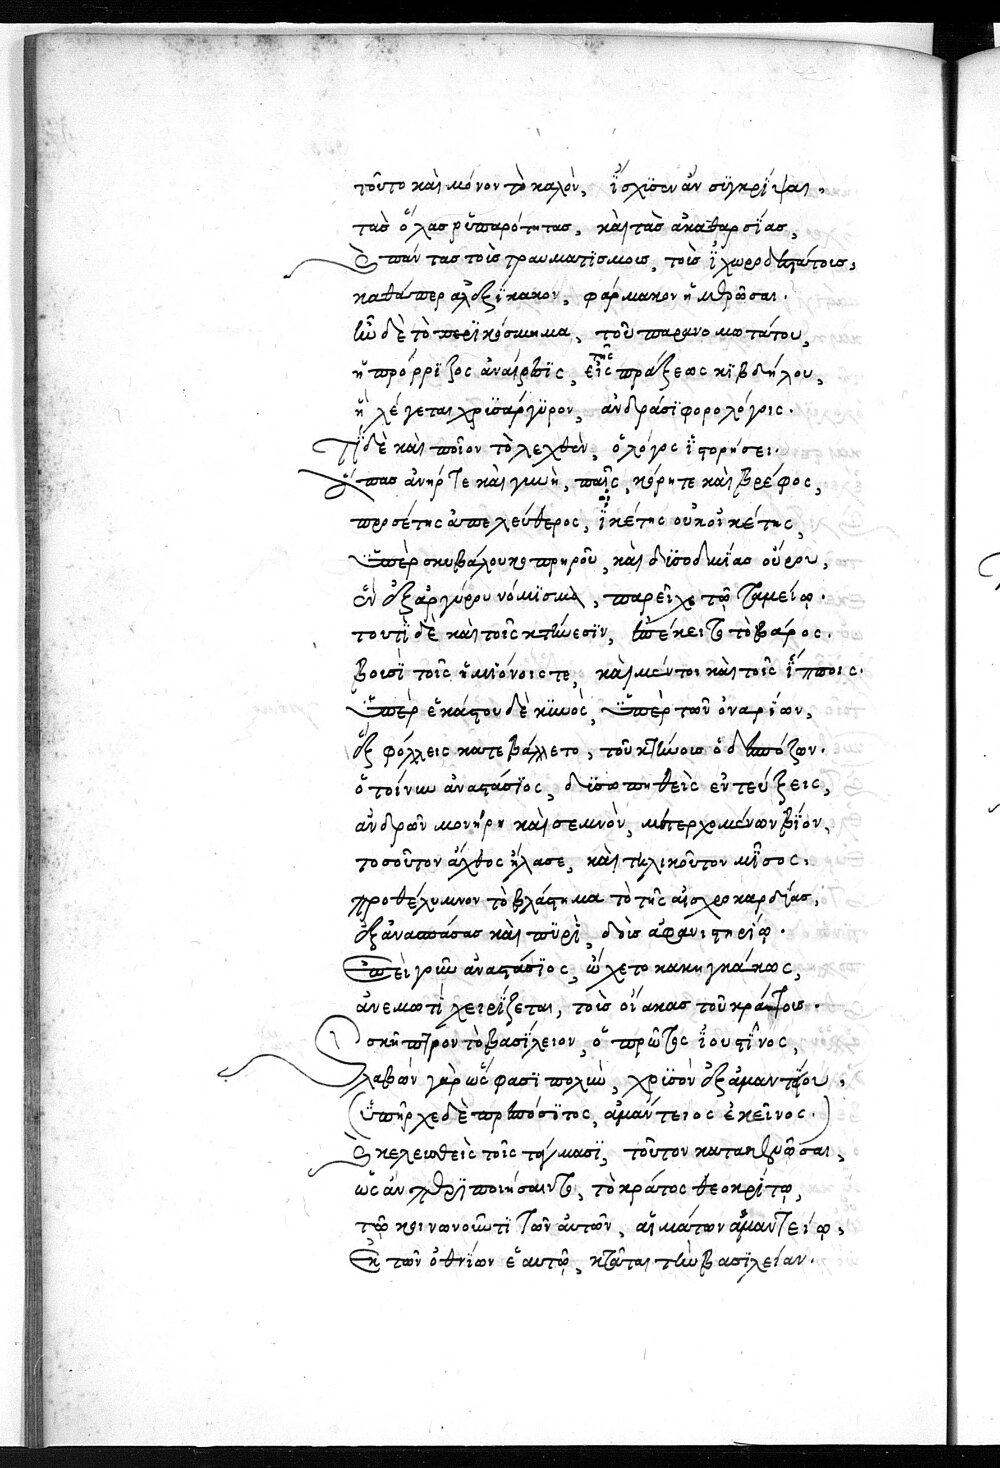 τοῦτο καὶ μόνον τὸ καλὸν, ἴσχυσεν ἂν συγκρύψαι.
τὰς ὅλας ῥυπαρότητας, καὶ τὰς ἀκαθαρσίας,
πάντας τοῖς τραυματισμοῖς, τοῖς ἰχωρ
καθάπερ ἀλεξίκακον, φάρμακον
ἦν δὲ τὸ περικόσμημα, τοῦ παρανομωτάτου,
ἡ πρόρριζος ἀναίρεσις, τῆς πράξεως κιβδήλου,
ἣ λέγεται χρυσάργυρον, ἀνδράσι φορολόγοις.
Τί δὲ καὶ ποῖον τὸ λεχθὲν, ὁ λόγος ἱστορήσει.
πᾶς ἀνήρ τε καὶ γυνὴ, παῖς, κόρη τε καὶ βρέφος,
προσέτης ἀπελεύθερος, ἱκέτης οὐκ οἰκέτης,
ὑπὲρ σκυβάλου κοπρηροῦ, καὶ δυσοδμίας οὔρου,
ἓν ἐξ ἀργύρου νόμισμα, παρεῖχε τῷ ταμείῳ.
τουτὶ δὲ καὶ τοῖς κτήνεσιν, ἐπέκειτο τὸ βάρος.
βουσὶ τοῖς ἡμιόνοις τε, καὶ μέντοι καὶ τοῖς ἵπποις.
ὑπὲρ ἑκάστου δὲ κυνὸς, ὑπὲρ τῶν ὀναρίων,
ἓξ φόλλεις κατεβάλλετο, τοῦ κτήνους ὁ δεσπόζων.
ὁ τοίνυν ἀναστάσιος, δυσωπηθεὶς ἐντεύξεις,
ἀνδρῶν μονήρη καὶ σεμνὸν, μετερχομένων βίον,
τοσοῦτον ἄχθος ἤλασε, καὶ τηλικοῦτον μῖσος.
προθέλυμνον τὸ βλάστημα τὸ τῆς αἰσχροκερδίας,
ἐξανασπάσας καὶ πυρὶ, δοὺς ἀφανιστηρίῳ.
Ἐπεὶ γοῦν ἀναστάσιος, ᾤχετο κακιγκάκως,
ἀνεμωτὶ χειρίζεται, τοὺς οἴακας τοῦ κράτους.
σκῆπτρον τὸ βασίλειον, ὁ πρῶτος ἰουστῖνος,
λαβὼν γὰρ ὥς φασι πολὺν, χρυσὸν ἐξ ἀμαντίου,
(ὑπῆρχε δὲ πραιπόσιτος, ἀμάντειος ἐκεῖνος.)
κελευσθεὶς τοῖς τάγμασι, τοῦτον κατα
ὡς ἂν ποιήσαιντο, τὸ κράτος θεοκρίτῳ,
τῷ κοινωνοῦντι τῶν αὐτῶν, αἱμάτων ἀμαντείῳ,
Ἐκ τῶν ὀθνίων ἑαυτῷ, κτᾶται τὴν βασιλείαν.